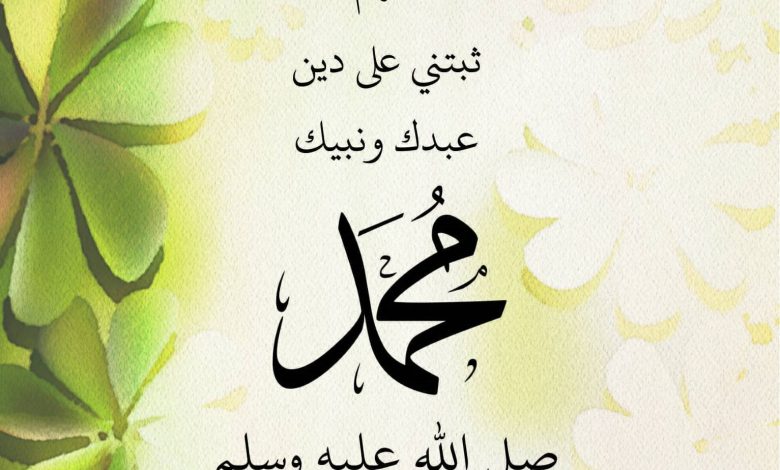 ثبتني على دين
عبدك ونبيك
مُحمد
صل الله عليه وسلم